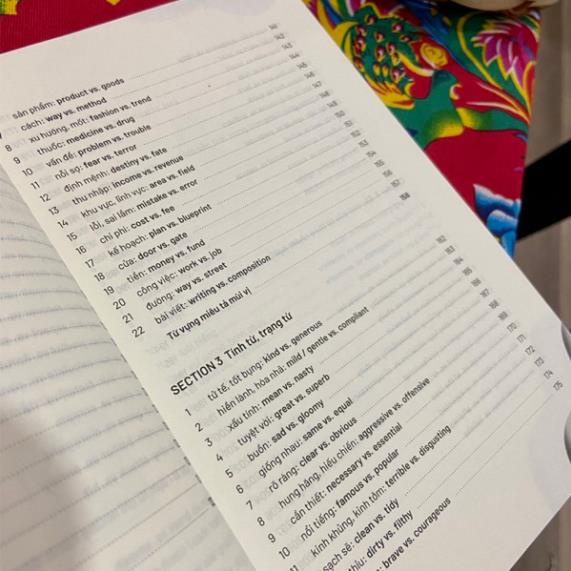 sản phẩm: product vs. goods
cách: way vs. method
8 xu hướng, mốt: fashion vs. trend
9 thuốc: medicine vs. drug
10 vấn đề: problem vs. trouble
11 nỗi sợ: fear vs. terror
12 định mệnh: destiny vs. fate
13 thu nhập: income vs. revenue
14 khu vực, lĩnh vực: area vs. field
15 lỗi, sai lầm: mistake vs. error
16 chi phí: cost vs. fee
17 kế hoạch: plan vs. blueprint
18 cửa: door vs. gate
19 tiền: money vs. fund
20 công việc: work vs. job
21 đường: way vs. street
22 bài viết: writing vs. composition
Từ vựng miêu tả mùi vị 158
SECTION 3 Tính từ, trạng từ
1 tử tế, tốt bụng: kind vs. generous
2 hiền lành, hòa nhã: mild / gentle vs. compliant
3 xấu tính: mean vs. nasty
4 tuyệt vời: great vs. superb
5 buồn: sad vs. gloomy
6 giống nhau: same vs. equal
7 rõ ràng: clear vs. obvious
8 hung hăng, hiếu chiến: aggressive vs. offensive
9 cần thiết: necessary vs. essential
10 nổi tiếng: famous vs. popular
11 kinh khủng, kinh tởm: terrible vs. disgusting
sạch sẽ: clean vs. tidy
dirty vs. filthy
brave vs. courageous